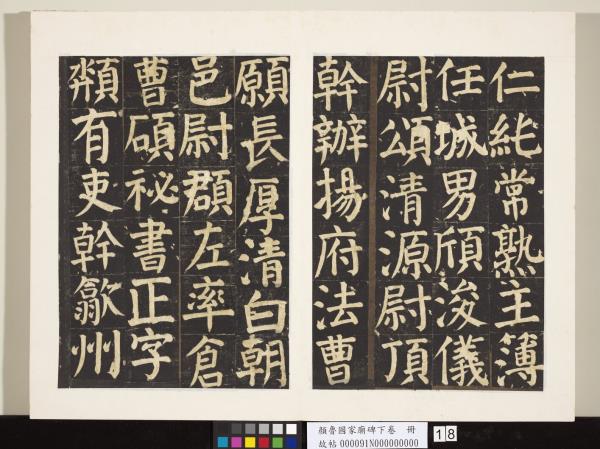 仁純常熟主簿
任城男頎浚儀
尉頌清源尉頂
幹辦揚府法曹
願長厚清白朝
邑尉頵左率倉
曹碩祕書正字
頮有吏幹歙州
顏魯國家廟碑下卷 冊
故帖 000091N000000000
18